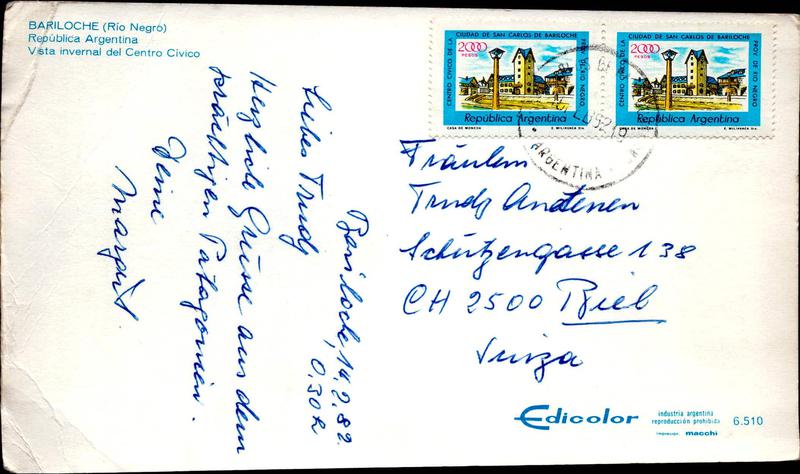 BARILOCHE (Río Negro)
República Argentina
Vista invernal del Centro Cívico
CIUDAD DE SAN CARLOS DE BARILOCHE
CENTRO CIVICO DE LA
2000
PESOS
PROV. DE RIO NEGRO
República Argentina
CASA DE MONEDA
CIUDAD DE SAN CARLOS DE BARILOCHE
CENTRO CIVICO DE LA
2000
PESOS
PROV. DE RIO NEGRO
República Argentina
CASA DE MONEDA
ARGENTINA
Bariloche, 14.2.82.
0.30h
Liebes Trudy
Herzliche Grüsse aus dem
prächtigen Patagonien.
Deine
Margrit
Fräulein
Trudy
Schützengasse 138
CH 2500 Biel
Suiza
Edicolor
industria argentina
reproducción prohibida
impresion macchi
6.510